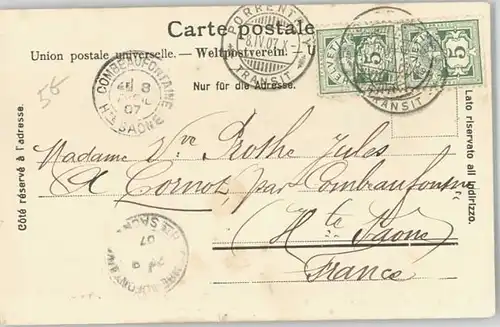 Carte postale
Union postale universelle. — Weltpostverein. — U
Nur für die Adresse.
Côté réservé à l'adresse.
Lato riservato all indirizzo.
PORRENTRUY
8.IV.07.X
TRANSIT
TRANSIT
HELVETIA
5
5
COMBEAUFONTAINE
8
07
HTE SAONE
58
Madame Vve Prothe Jules
A Cornot, par Combeaufontaine
Hte Saône
France
COMBEAUFONTAINE
07
HTE SAONE